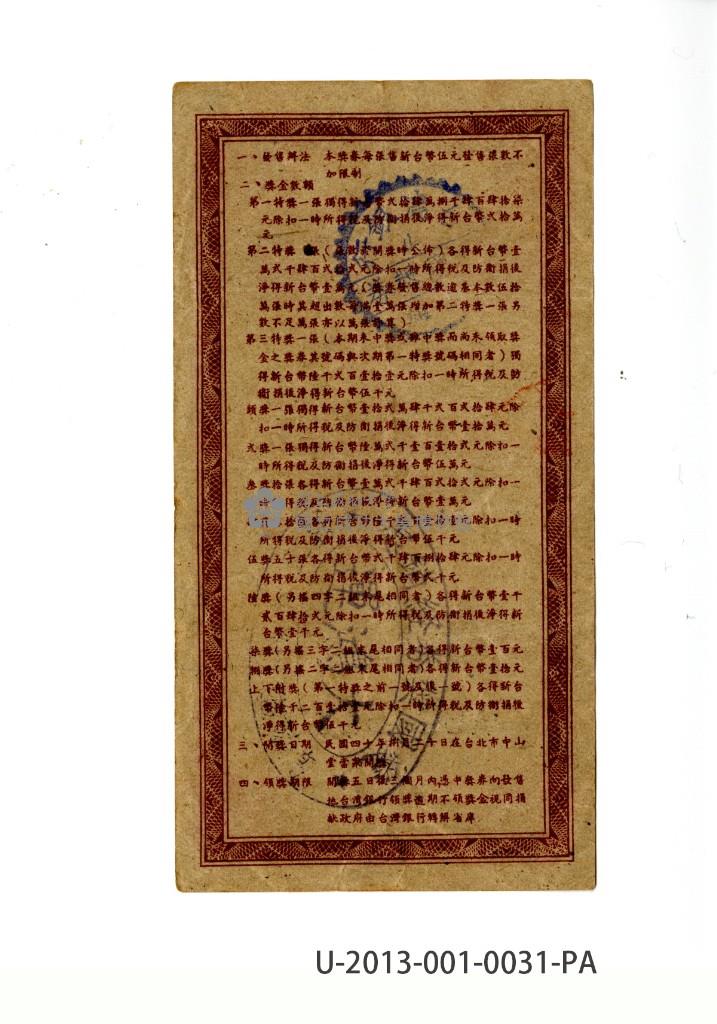 一、發售辦法　本獎券每張售新台幣伍元發售張數不
加限制
二、獎金數額
第一特獎一張獨得新台幣弍拾肆萬捌千肆百肆拾柒
元除扣一時所得稅及防衛捐後淨得新台幣弍拾萬
元
第二特獎 張(張數於開獎時公佈)各得新台幣壹
萬弍千肆百弍拾弍元除扣一時所得稅及防衛捐後
淨得新台幣壹萬元(獎券發售總數逾叁本數伍拾
萬張時其超出數每滿壹萬張增加第二特獎一張另
數不足萬張亦以萬張計算)
第三特獎一張(本期未中獎或雖中獎而尚未領取獎
金之獎券其號碼與次期第一特獎號碼相同者)獨
得新台幣陸千弍百壹拾壹元除扣一時所得稅及防
衛捐後淨得新台幣伍千元
頭獎一張獨得新台幣壹拾弍萬肆千弍百弍拾肆元除
扣一時所得稅及防衛捐後淨得新台幣壹拾萬元
弍獎一張獨得新台幣陸萬弍千壹百壹拾弍元除扣一
時所得稅及防衛捐後淨得新台幣伍萬元
叁獎拾張各得新台幣壹萬弍千肆百弍拾弍元除扣一
時所得稅及防衛捐後淨得新台幣壹萬元
拾張各得新台幣陸千 百壹拾壹元除扣一時
所得稅及防衛捐後淨得新台幣伍千元
伍獎五十張各得新台幣弍千肆百捌拾肆元除扣一時
所得稅及防衛捐後淨得新台幣弍千元
陸獎(另搖四字二組末尾相同者)各得新台幣壹千
貳百肆拾弍元除扣一時所得稅及防衛捐後淨得新
台幣壹千元
柒獎(另搖三字二組末尾相同者)各得新台幣壹百元
捌獎(另搖二字二組末尾相同者)各得新台幣壹拾元
上下附獎(第一特獎之前一號及後一號)各得新台
幣陸千二百壹拾壹元除扣一時所得稅及防衛捐後
淨得新台幣伍千元
三、開獎日期　民國四十年捌月二十日在台北市中山
堂當眾開獎
四、領獎期限　開獎五日後三個月內憑中獎券向發售
地台灣銀行領獎逾期不領獎金視同捐
獻政府由台灣銀行轉解省庫
U-2013-001-0031-PA